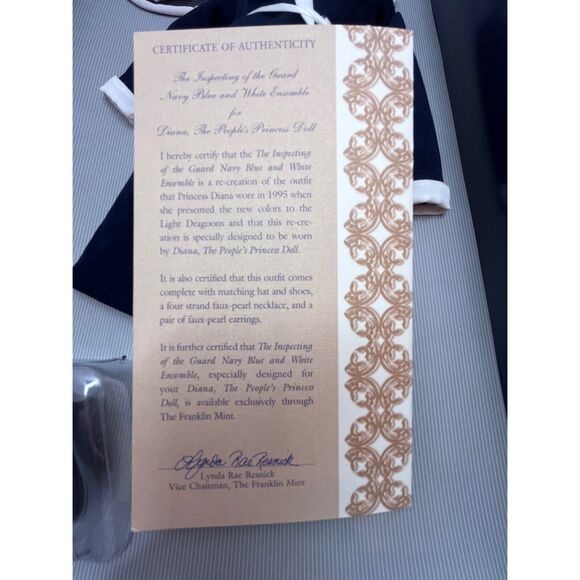 CERTIFICATE OF AUTHENTICITY
The Inspecting of the Guard
Navy Blue and White Ensemble
for
Diana, The People's Princess Doll
I hereby certify that the The Inspecting
of the Guard Navy Blue and White
Ensemble is a re-creation of the outfit
that Princess Diana wore in 1995 when
she presented the new colors to the
Light Dragoons and that this re-cre-
ation is specially designed to be worn
by Diana, The People's Princess Doll.
It is also certified that this outfit comes
complete with matching hat and shoes,
a four strand faux-pearl necklace, and a
pair of faux-pearl earrings.
It is further certified that The Inspecting
of the Guard Navy Blue and White
Ensemble, especially designed for
your Diana, The People's Princess
Doll, is available exclusively through
The Franklin Mint.
Lynda Rae Resnick
Lynda Rae Resnick
Vice Chairman, The Franklin Mint